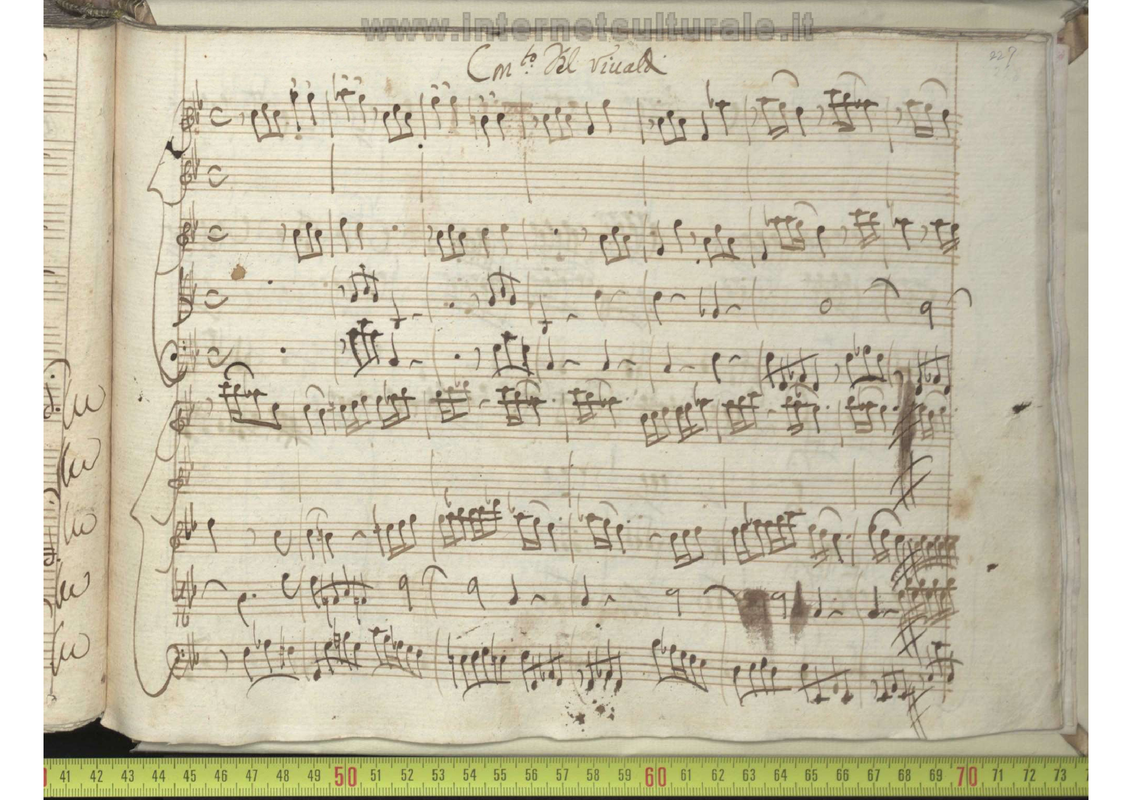 www.internetculturale.it
Con.to Del Viualdi
229
41 42 43 44 45 46 47 48 49 50 51 52 53 54 55 56 57 58 59 60 61 62 63 64 65 66 67 68 69 70 71 72 73